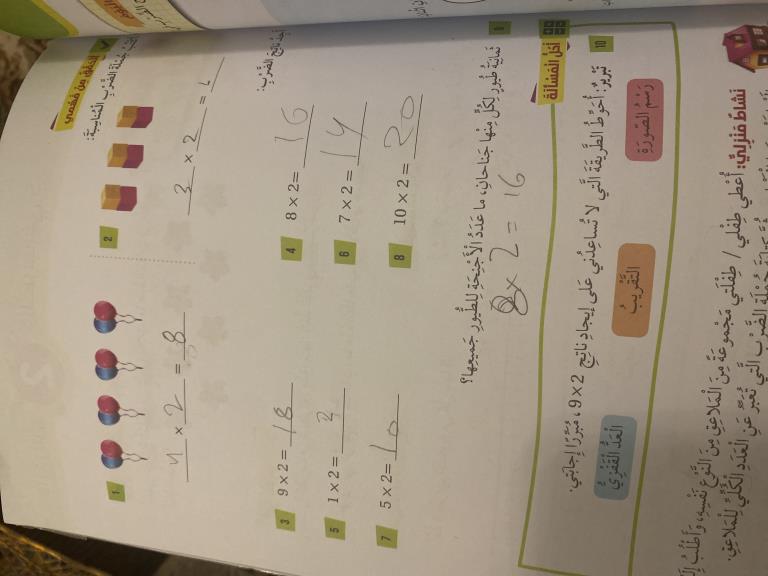 أتحقق من فهمي
أكتب جملة الضرب المناسبة:
1
4 × 2 = 8
2
3 × 2 =
أجد ناتج الضرب:
3 9 × 2 = 18
4 8 × 2 = 16
5 1 × 2 =
6 7 × 2 = 14
7 5 × 2 = 10
8 10 × 2 = 20
9 ثمانية طيور لكل منها جناحان، ما عدد الأجنحة للطيور جميعها؟
8 × 2 = 16
أحل المسألة
10 تبرير: أحوط الطريقة التي لا تساعدني على إيجاد ناتج 9 × 2 ، مبررا إجابتي.
العد القفزي
التقريب
رسم الصورة
نشاط منزلي: أعطي طفلي / طفلتي مجموعة من الملاعق من النوع نفسه، وأطلب
جملة الضرب التي تعبر عن العدد الكلي للملاعق.